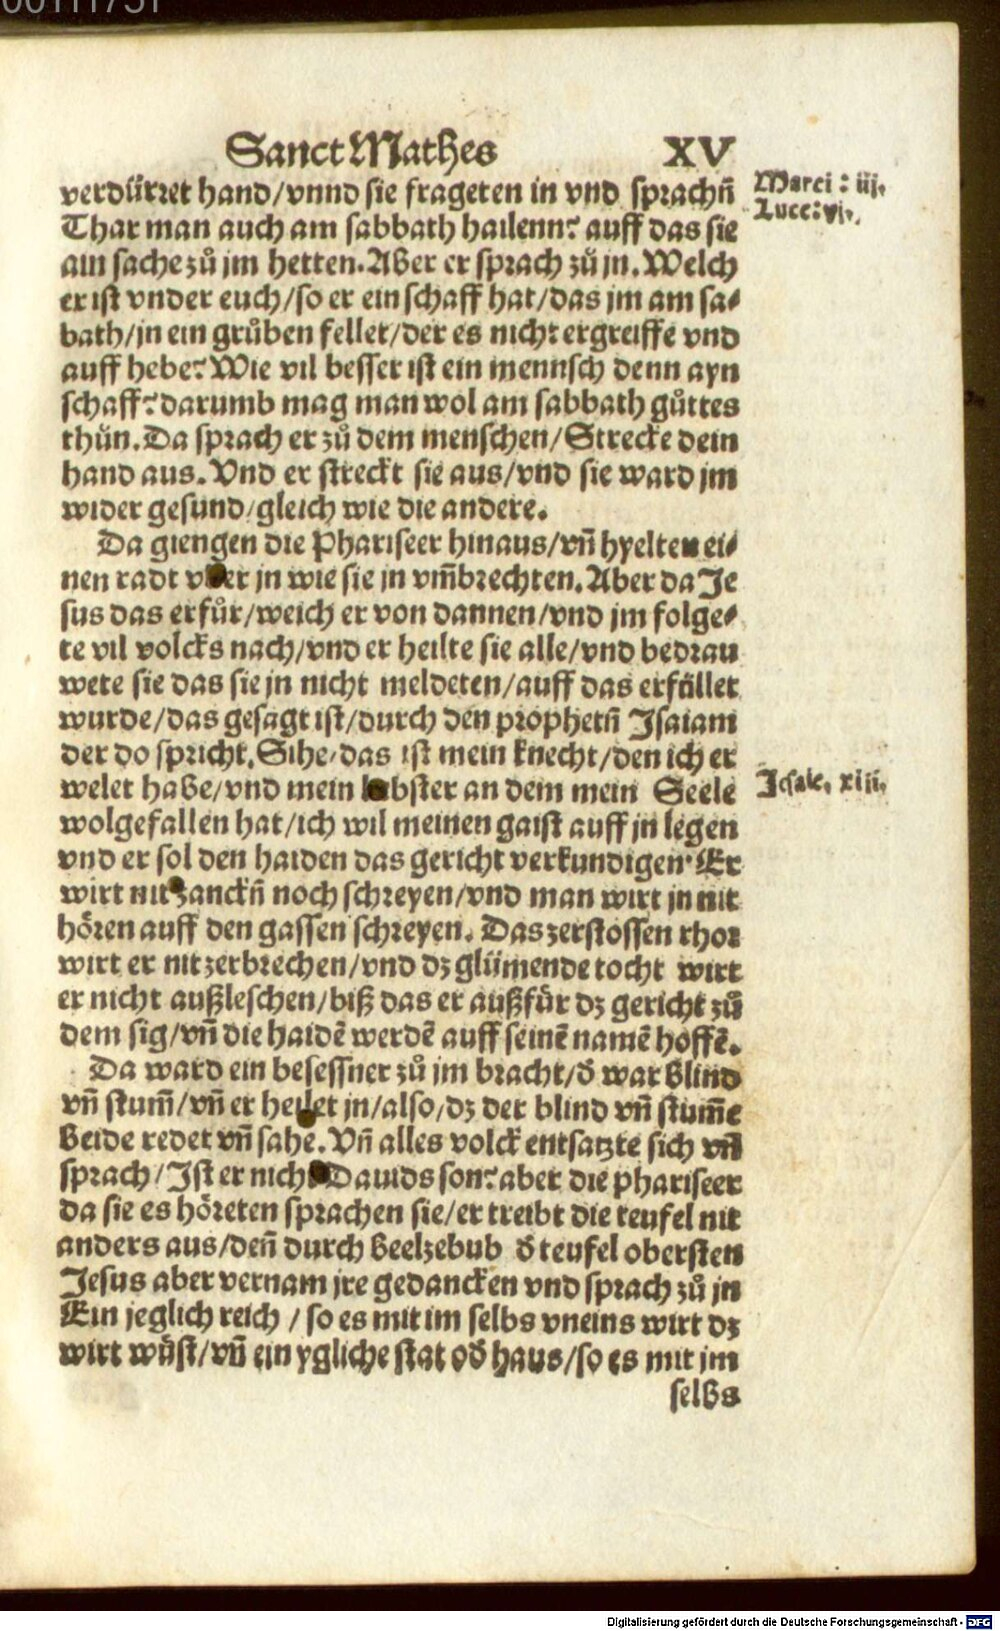 00111751
Sanct Mathes XV
verdürret hand/vnnd sie frageten in vnd sprachn̄
Marci: iij.
Thar man auch am sabbath hailenn? auff das sie
Luce: vi.
ain sache zů im hetten. Aber er sprach zů jn. Welch
er ist vnder euch/so er ein schaff hat/das jm am sa⸗
bath/jn ein grůben fellet/der es nicht ergreiffe vnd
auff hebe? Wie vil besser ist ein mennsch denn ayn
schaff? darumb mag man wol am sabbath gůttes
thůn. Da sprach er zů dem menschen/Strecke dein
hand aus. Vnd er streckt sie aus/vnd sie ward jm
wider gesund/gleich wie die andere.
Da giengen die Phariseer hinaus/vn̄ hyelten ei⸗
nen radt vber jn wie sie jn vm̄brechten. Aber da Je
sus das erfůr/weich er von dannen/vnd jm folge⸗
te vil volcks nach/vnd er heilte sie alle/vnd bedrau
wete sie das sie jn nicht meldeten/auff das erfüllet
wurde/das gesagt ist/durch den prophetn̄ Jsaiam
der do spricht. Sihe/das ist mein knecht/den ich er
welet habe/vnd mein lebster an dem mein Seele
Jesaie. xlii.
wolgefallen hat/ich wil meinen gaist auff jn legen
vnd er sol den haiden das gericht verkundigen. Er
wirt nit zanckn̄ noch schreyen/vnd man wirt jn nit
hören auff den gassen schreyen. Das zerstossen rhor
wirt er nit zerbrechen/vnd dz glümende tocht wirt
er nicht außleschen/biß das er außfür dz gericht zů
dem sig/vn̄ die haidē werdē auff seinē namē hoffē.
Da ward ein besessner zů jm bracht/d̄ war blind
vn̄ stum̄/vn̄ er heilet jn/also/dz der blind vn̄ stum̄e
beide redet vn̄ sahe. Vn̄ alles volck entsatzte sich vn̄
sprach/Jst er nicht Dauids son? aber die phariseer
da sie es höreten sprachen sie/er treibt die teufel nit
anders aus/den̄ durch Beelzebub d̄ teufel obersten
Jesus aber vernam jre gedancken vnd sprach zů jn
Ein jeglich reich / so es mit im selbs vneins wirt dz
wirt wůst/vn̄ ein ygliche stat od̄ haus/so es mit jm
selbs
Digitalisierung gefördert durch die Deutsche Forschungsgemeinschaft - DFG